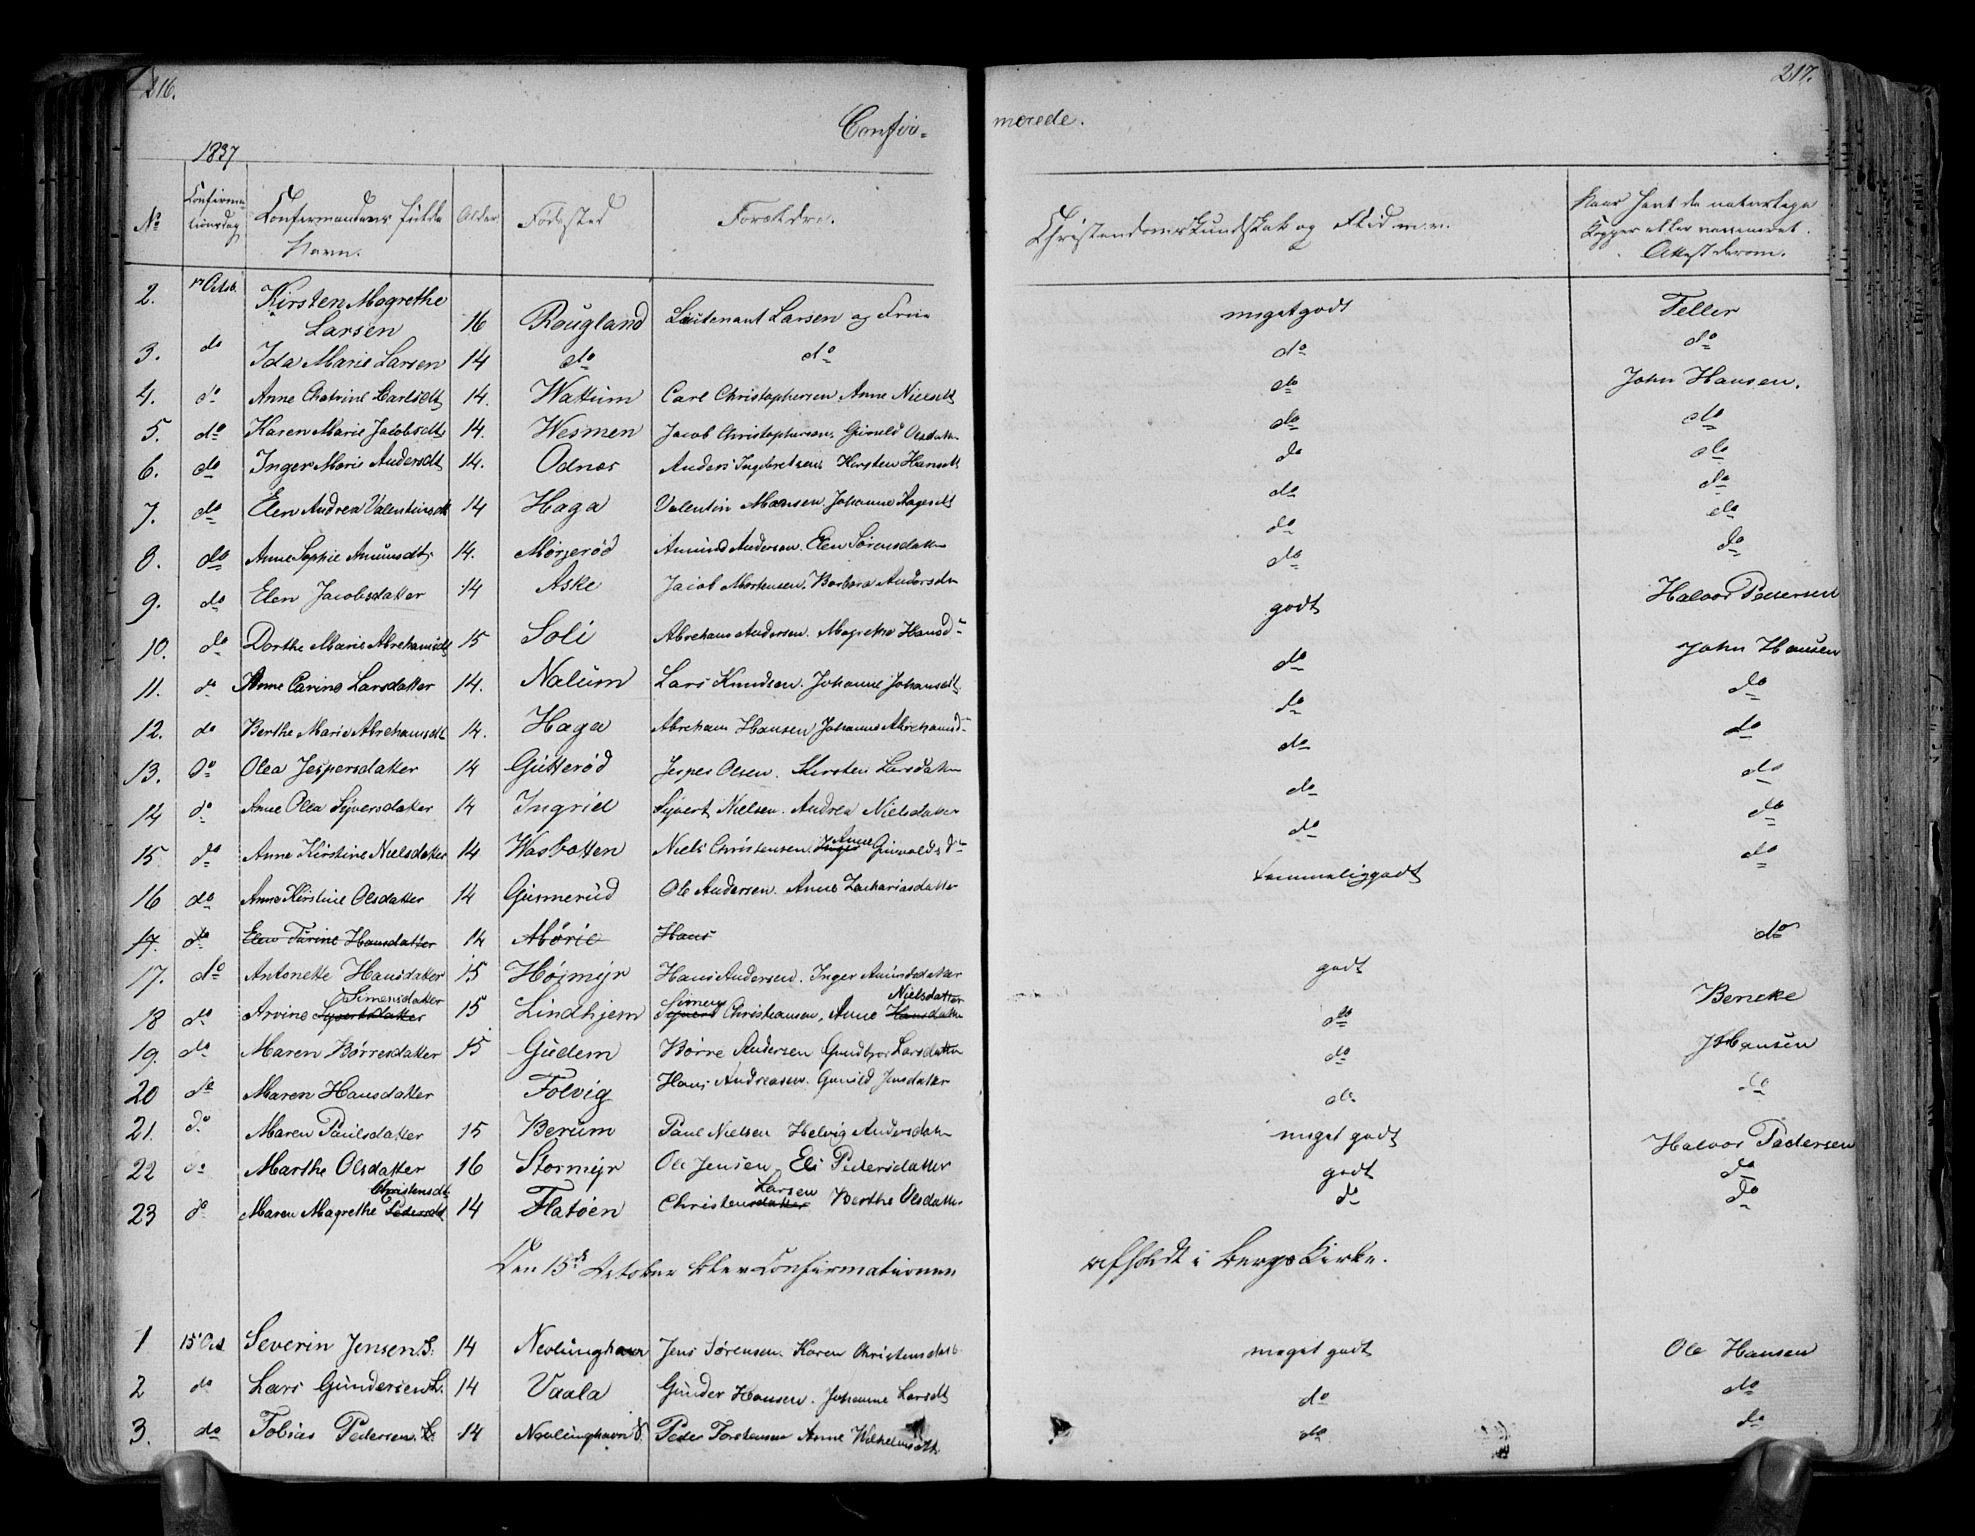 216.
217.
Confir-
merede.
1837
No Confirmationsdag Confirmandens fulde Navn. Alder Fødested Forældre. Christendomskundskab og Flid m.v. Naar havt de naturlige Kopper eller vaccineret. Attest derom.
2. 1ste Octob. Kirsten Magrethe Larsen 16 Rougland Lieutenant Larsen og Frue meget godt Feller
3. do Ida Marie Larsen 14 do do do do
4. do Anne Chatrine Carlsdt 14. Wattum Carl Christophersen Anne Nielsdt do John Hansen.
5. do Karen Marie Jacobsdt 14. Wesmen Jacob Christophersen. Gunild Olsdatter do do
6. do Inger Marie Andersdt 14. Odnes Anders Ingebretsens Kirsten Hansdt do do
7. do Elen Andrea Valentinsdt 14 Haga Valentin Hansen. Johanne Aagesdt do do
8. do Anne Sophie Amunsdt 14. Mørjerød Amund Andersen. Elen Sørensdatter do do
9. do Elen Jacobsdatter 14 Aske Jacob Mortensen. Barbara Andersdr do do
10. do Dorthe Marie Abrehamsdt 15 Soli Abreham Andersen. Magrethe Hansd godt Halvor Pedersen
11. do Anne Carine Larsdatter 14. Nalum Lars Knudsen. Johanne Johansdt do John Hansen
12. do Berthe Marie Abrehamsdt 14. Haga Abreham Hansen Johanne Abrehamsd do do
13. do Olea Jespersdatter 14 Gutterød Jesper Olsen. Kirsten Larsdatter do do
14 do Anne Olea Syversdatter 14 Ingrid Syvert Nielsen. Andrea Nielsdatter do do
15 do Anne Kirstine Nielsdatter 14 Wasbotten Niels Christensen. Inger Anne Gunvalds d do do
16 do Anne Kirstine Olsdatter 14 Gunnerud Ole Andersen. Anne Zachariasdatter temmeliggodt do
17. do Elen Turine Hansdatter 14 Mørie Hans
17. do Antonette Hansdatter 15 Højmyr Hans Andersen. Inger Amundsdatter godt do
18 do Arvine Syvertsdatter Simensdatter 15 Lindhjem Syvert Simen Christiansen, Anne Hansdatter Nielsdatter do Beneke
19. do Maren Børresdatter 15 Gudem Børre Andersen Gundbjør Larsdatter do JHansen
20 do Maren Hansdatter Folvig Hans Andreasen. Gunild Jensdatter do do
21. do Maren Paulsdatter 15 Berum Paul Nielsen Helvig Andersdatter meget godt Halvor Pedersen
22 do Marthe Olsdatter 16 Stormyr Ole Jensen Eli Pedersdatter godt do
23 do Maren Magrethe Pedersdt Christensdt 14 Flatøen Christensdatter Larsen Berthe Olsdatter do do
Den 15de October blev Confirmationen afholdt i Bergs Kirke.
1 15 Oct Severin Jensen. S: 14 Nevlunghavn Jens Sørensen. Karen Christensdatt meget godt Ole Hansen
2 do Lars Gundersen L. 14 Vaala Gunder Hansen. Johanne Larsdt do do
3. do Tobias Pedersen. L: 14 Nevlunghavn Peder Torstensen Anne Wilhelmsdt do do